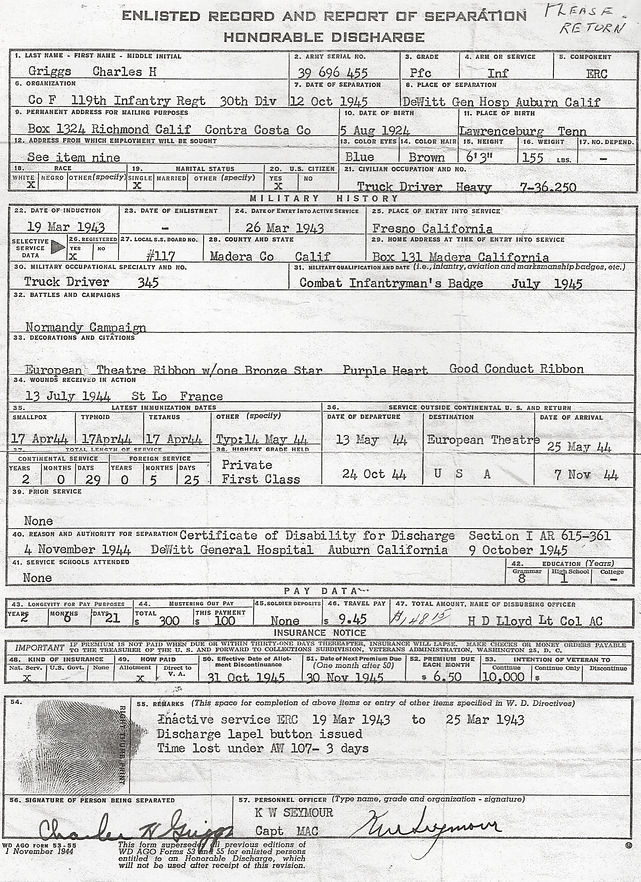 PLEASE
RETURN
ENLISTED RECORD AND REPORT OF SEPARATION
HONORABLE DISCHARGE
1. LAST NAME - FIRST NAME - MIDDLE INITIAL 2. ARMY SERIAL NO. 3. GRADE 4. ARM OR SERVICE 5. COMPONENT
Griggs Charles H 39 696 455 Pfc Inf ERC
6. ORGANIZATION 7. DATE OF SEPARATION 8. PLACE OF SEPARATION
Co F 119th Infantry Regt 30th Div 12 Oct 1945 DeWitt Gen Hosp Auburn Calif
9. PERMANENT ADDRESS FOR MAILING PURPOSES 10. DATE OF BIRTH 11. PLACE OF BIRTH
Box 1324 Richmond Calif Contra Costa Co 5 Aug 1924 Lawrenceburg Tenn
12. ADDRESS FROM WHICH EMPLOYMENT WILL BE SOUGHT 13. COLOR EYES 14. COLOR HAIR 15. HEIGHT 16. WEIGHT 17. NO. DEPEND.
See item nine Blue Brown 6'3" 155 LBS. -
18. RACE 19. MARITAL STATUS 20. U.S. CITIZEN 21. CIVILIAN OCCUPATION AND NO.
WHITE NEGRO OTHER (specify) SINGLE MARRIED OTHER (specify) YES NO
X X X Truck Driver Heavy 7-36.250
MILITARY HISTORY
22. DATE OF INDUCTION 23. DATE OF ENLISTMENT 24. DATE OF ENTRY INTO ACTIVE SERVICE 25. PLACE OF ENTRY INTO SERVICE
19 Mar 1943 - 26 Mar 1943 Fresno California
SELECTIVE SERVICE DATA 26. REGISTERED YES NO 27. LOCAL S.S. BOARD NO. 28. COUNTY AND STATE 29. HOME ADDRESS AT TIME OF ENTRY INTO SERVICE
X #117 Madera Co Calif Box 131 Madera California
30. MILITARY OCCUPATIONAL SPECIALTY AND NO. 31. MILITARY QUALIFICATION AND DATE (i.e., infantry, aviation and marksmanship badges, etc.)
Truck Driver 345 Combat Infantryman's Badge July 1945
32. BATTLES AND CAMPAIGNS
Normandy Campaign
33. DECORATIONS AND CITATIONS
European Theatre Ribbon w/one Bronze Star Purple Heart Good Conduct Ribbon
34. WOUNDS RECEIVED IN ACTION
13 July 1944 St Lo France
35. LATEST IMMUNIZATION DATES 36. SERVICE OUTSIDE CONTINENTAL U. S. AND RETURN
SMALLPOX TYPHOID TETANUS OTHER (specify) DATE OF DEPARTURE DESTINATION DATE OF ARRIVAL
17 Apr44 17Apr44 17 Apr44 Typ:14 May 44 13 May 44 European Theatre 25 May 44
37. TOTAL LENGTH OF SERVICE 38. HIGHEST GRADE HELD
CONTINENTAL SERVICE FOREIGN SERVICE
YEARS MONTHS DAYS YEARS MONTHS DAYS
2 0 29 0 5 25 Private First Class 24 Oct 44 U S A 7 Nov 44
39. PRIOR SERVICE
None
40. REASON AND AUTHORITY FOR SEPARATION Certificate of Disability for Discharge Section I AR 615-361
4 November 1944 DeWitt General Hospital Auburn California 9 October 1945
41. SERVICE SCHOOLS ATTENDED 42. EDUCATION (Years)
None Grammar 8 High School 1 College -
PAY DATA
43. LONGEVITY FOR PAY PURPOSES 44. MUSTERING OUT PAY 45. SOLDIER DEPOSITS 46. TRAVEL PAY 47. TOTAL AMOUNT, NAME OF DISBURSING OFFICER
YEARS 2 MONTHS 6 DAYS 21 TOTAL $ 300 THIS PAYMENT $ 100 None $ 9.45 H D Lloyd Lt Col AC
INSURANCE NOTICE
IMPORTANT IF PREMIUM IS NOT PAID WHEN DUE OR WITHIN THIRTY-ONE DAYS THEREAFTER, INSURANCE WILL LAPSE. MAKE CHECKS OR MONEY ORDERS PAYABLE
TO THE TREASURER OF THE U. S. AND FORWARD TO COLLECTIONS SUBDIVISION, VETERANS ADMINISTRATION, WASHINGTON 25, D. C.
48. KIND OF INSURANCE 49. HOW PAID 50. Effective Date of Allotment Discontinuance 51. Date of Next Premium Due (One month after 50) 52. PREMIUM DUE EACH MONTH 53. INTENTION OF VETERAN TO
Nat. Serv. U.S. Govt. None Allotment Direct to V. A. Continue Continue Only Discontinue
X X 31 Oct 1945 30 Nov 1945 $ 6.50 10,000 $
54. 55. REMARKS (This space for completion of above items or entry of other items specified in W. D. Directives)
RIGHT THUMB PRINT
Inactive service ERC 19 Mar 1943 to 25 Mar 1943
Discharge lapel button issued
Time lost under AW 107- 3 days
56. SIGNATURE OF PERSON BEING SEPARATED 57. PERSONNEL OFFICER (Type name, grade and organization - signature)
K W SEYMOUR
Charles H Griggs Capt MAC K W Seymour
WD AGO FORM 53-55
1 November 1944
This form supersedes all previous editions of
WD AGO Forms 53 and 55 for enlisted persons
entitled to an Honorable Discharge, which
will not be used after receipt of this revision.